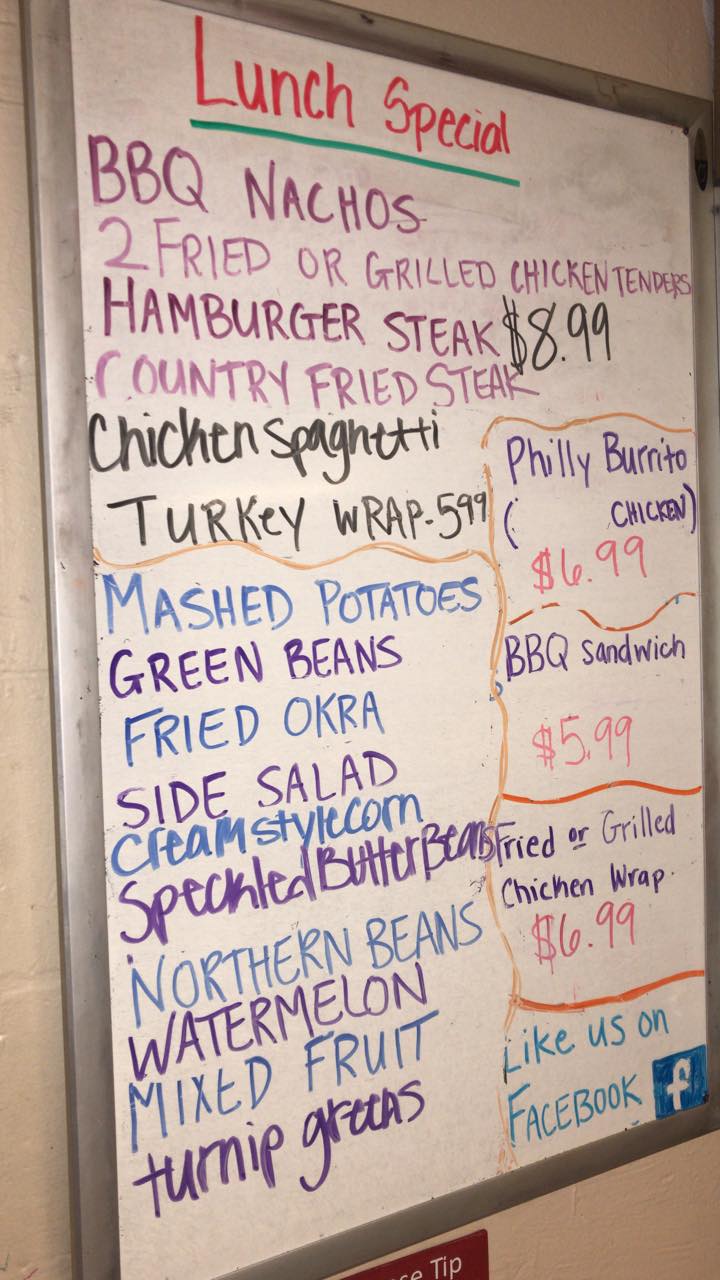 Lunch Special
BBQ NACHOS
2 FRIED OR GRILLED CHICKEN TENDERS
HAMBURGER STEAK $8.99
COUNTRY FRIED STEAK
Chicken Spaghetti
TURKEY WRAP. 599
MASHED POTATOES
GREEN BEANS
FRIED OKRA
SIDE SALAD
Cream style corn
Speckled Butter Beans
NORTHERN BEANS
WATERMELON
MIXED FRUIT
turnip greens
Philly Burrito
( CHICKEN)
$6.99
BBQ Sandwich
$5.99
Fried or Grilled
Chicken Wrap.
$6.99
Like us on
FACEBOOK f
Tip